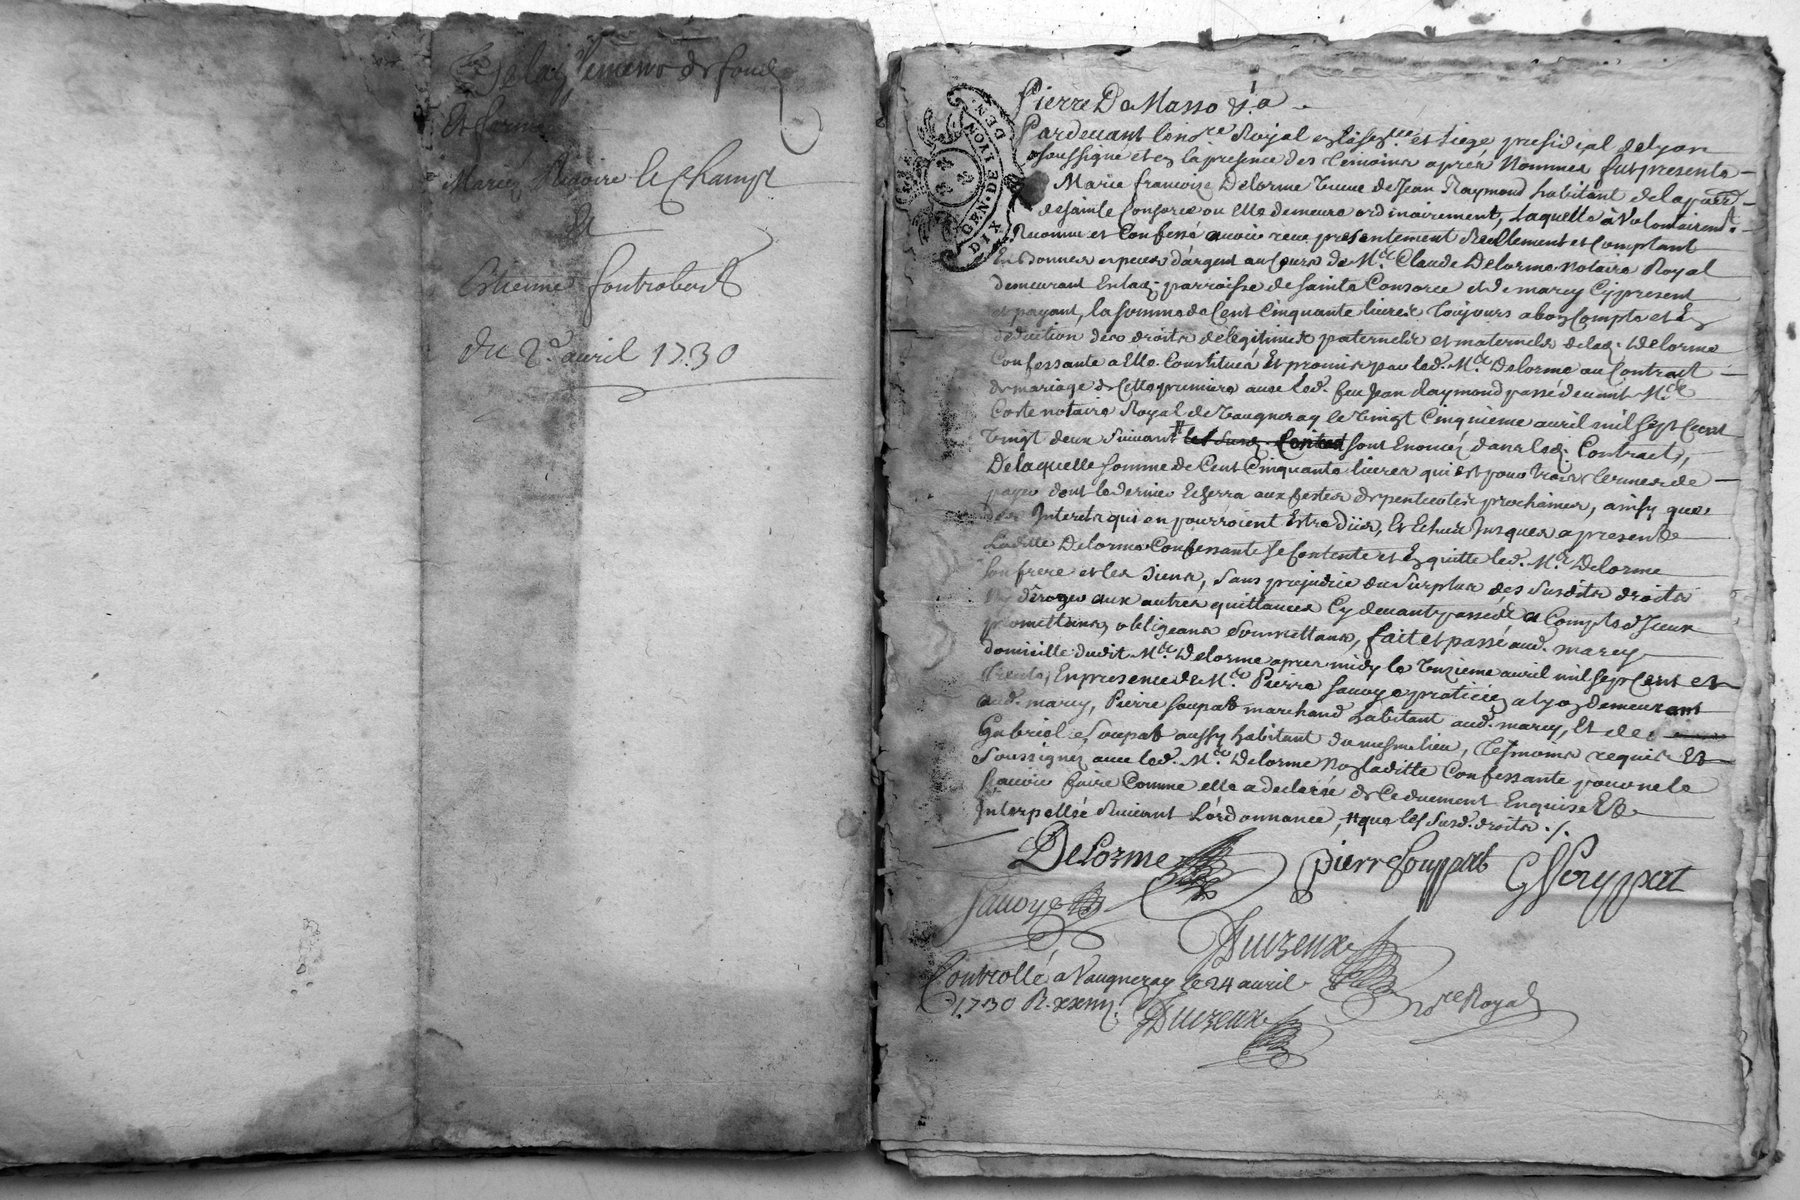 de fond
et forme
Mariez Lechamp
et
Estienne fontrobert
du 2e. avril 1730
GEN. DE LYON
DIX DEN.
Pierre De Masso &.a
Pardevant le no.re Royal en la sen.ée et siege presidial de Lyon
soussigné et en la presence des temoins apres nommes fut presente
Marie francoise Delorme veuve de Jean Raymond habitant de la par.sse
de sainte Consorce ou elle demeure ordinairement, laquelle à volontairem.t
Reconnu et Confessé avoir receu presentement reellement et Comptant
En bonnes especes d'argent au Cours de M.re Claude Delorme notaire Royal
demeurant En lad. parroisse de sainte Consorce et de marcy Cy present
et payant, la somme de Cent Cinquante livres toujours a bon Compte et En
deduction des droits de legitimes paternels et maternels de lad. Delorme
Confessante a elle Constitués Et promis par led. M.re Delorme au Contract
de mariage de Cette premiere avec led. feu Jean Raymond passé devant M.re
Coste notaire Royal de Vaugneray le vingt Cinquieme avril mil sept Cent
vingt deux suivant # les susd. Contract sont Enoncez dans led. Contract,
De laquelle somme de Cent Cinquante livres qui est pour trois termes de
paye dont le dernier Echerra aux festes de pentecotes prochaines, ainsy que
des Interets qui en pourroient Estre düs, Et Echus Jusques a present
Laditte Delorme Confessante se Contente et En quitte led. M.re Delorme
son frere et les siens, sans prejudice du surplus des susdits droits
Ny deroger aux autres quittances Cy devant passées a Compte d'Iceux
promettans, obligeans soumettans, fait et passé aud. marcy
domicille dudit M.re Delorme apres midy le Onzieme avril mil sept Cent et
trente, En presence de M.re Pierre Savoye praticien a Lyon demeurant
aud. marcy, Pierre Soupat marchand habitant aud. marcy, Et de
Gabriel Soupat aussy habitant du mesme lieu, tesmoins requis Et
Soussignez avec led. M.re Delorme Non laditte Confessante pour ne le
sçavoir faire Comme elle a declaré de Ce duement Enquise Et
Interpellée suivant L'ordonnance, # que les susd. droits ./.
Delorme Pierre Souppat G Souppat
Savoye
Duizeux
no.re Royal
Controllé a Vaugneray le 24 avril
1730 R. xxiiij s.
Duizeux